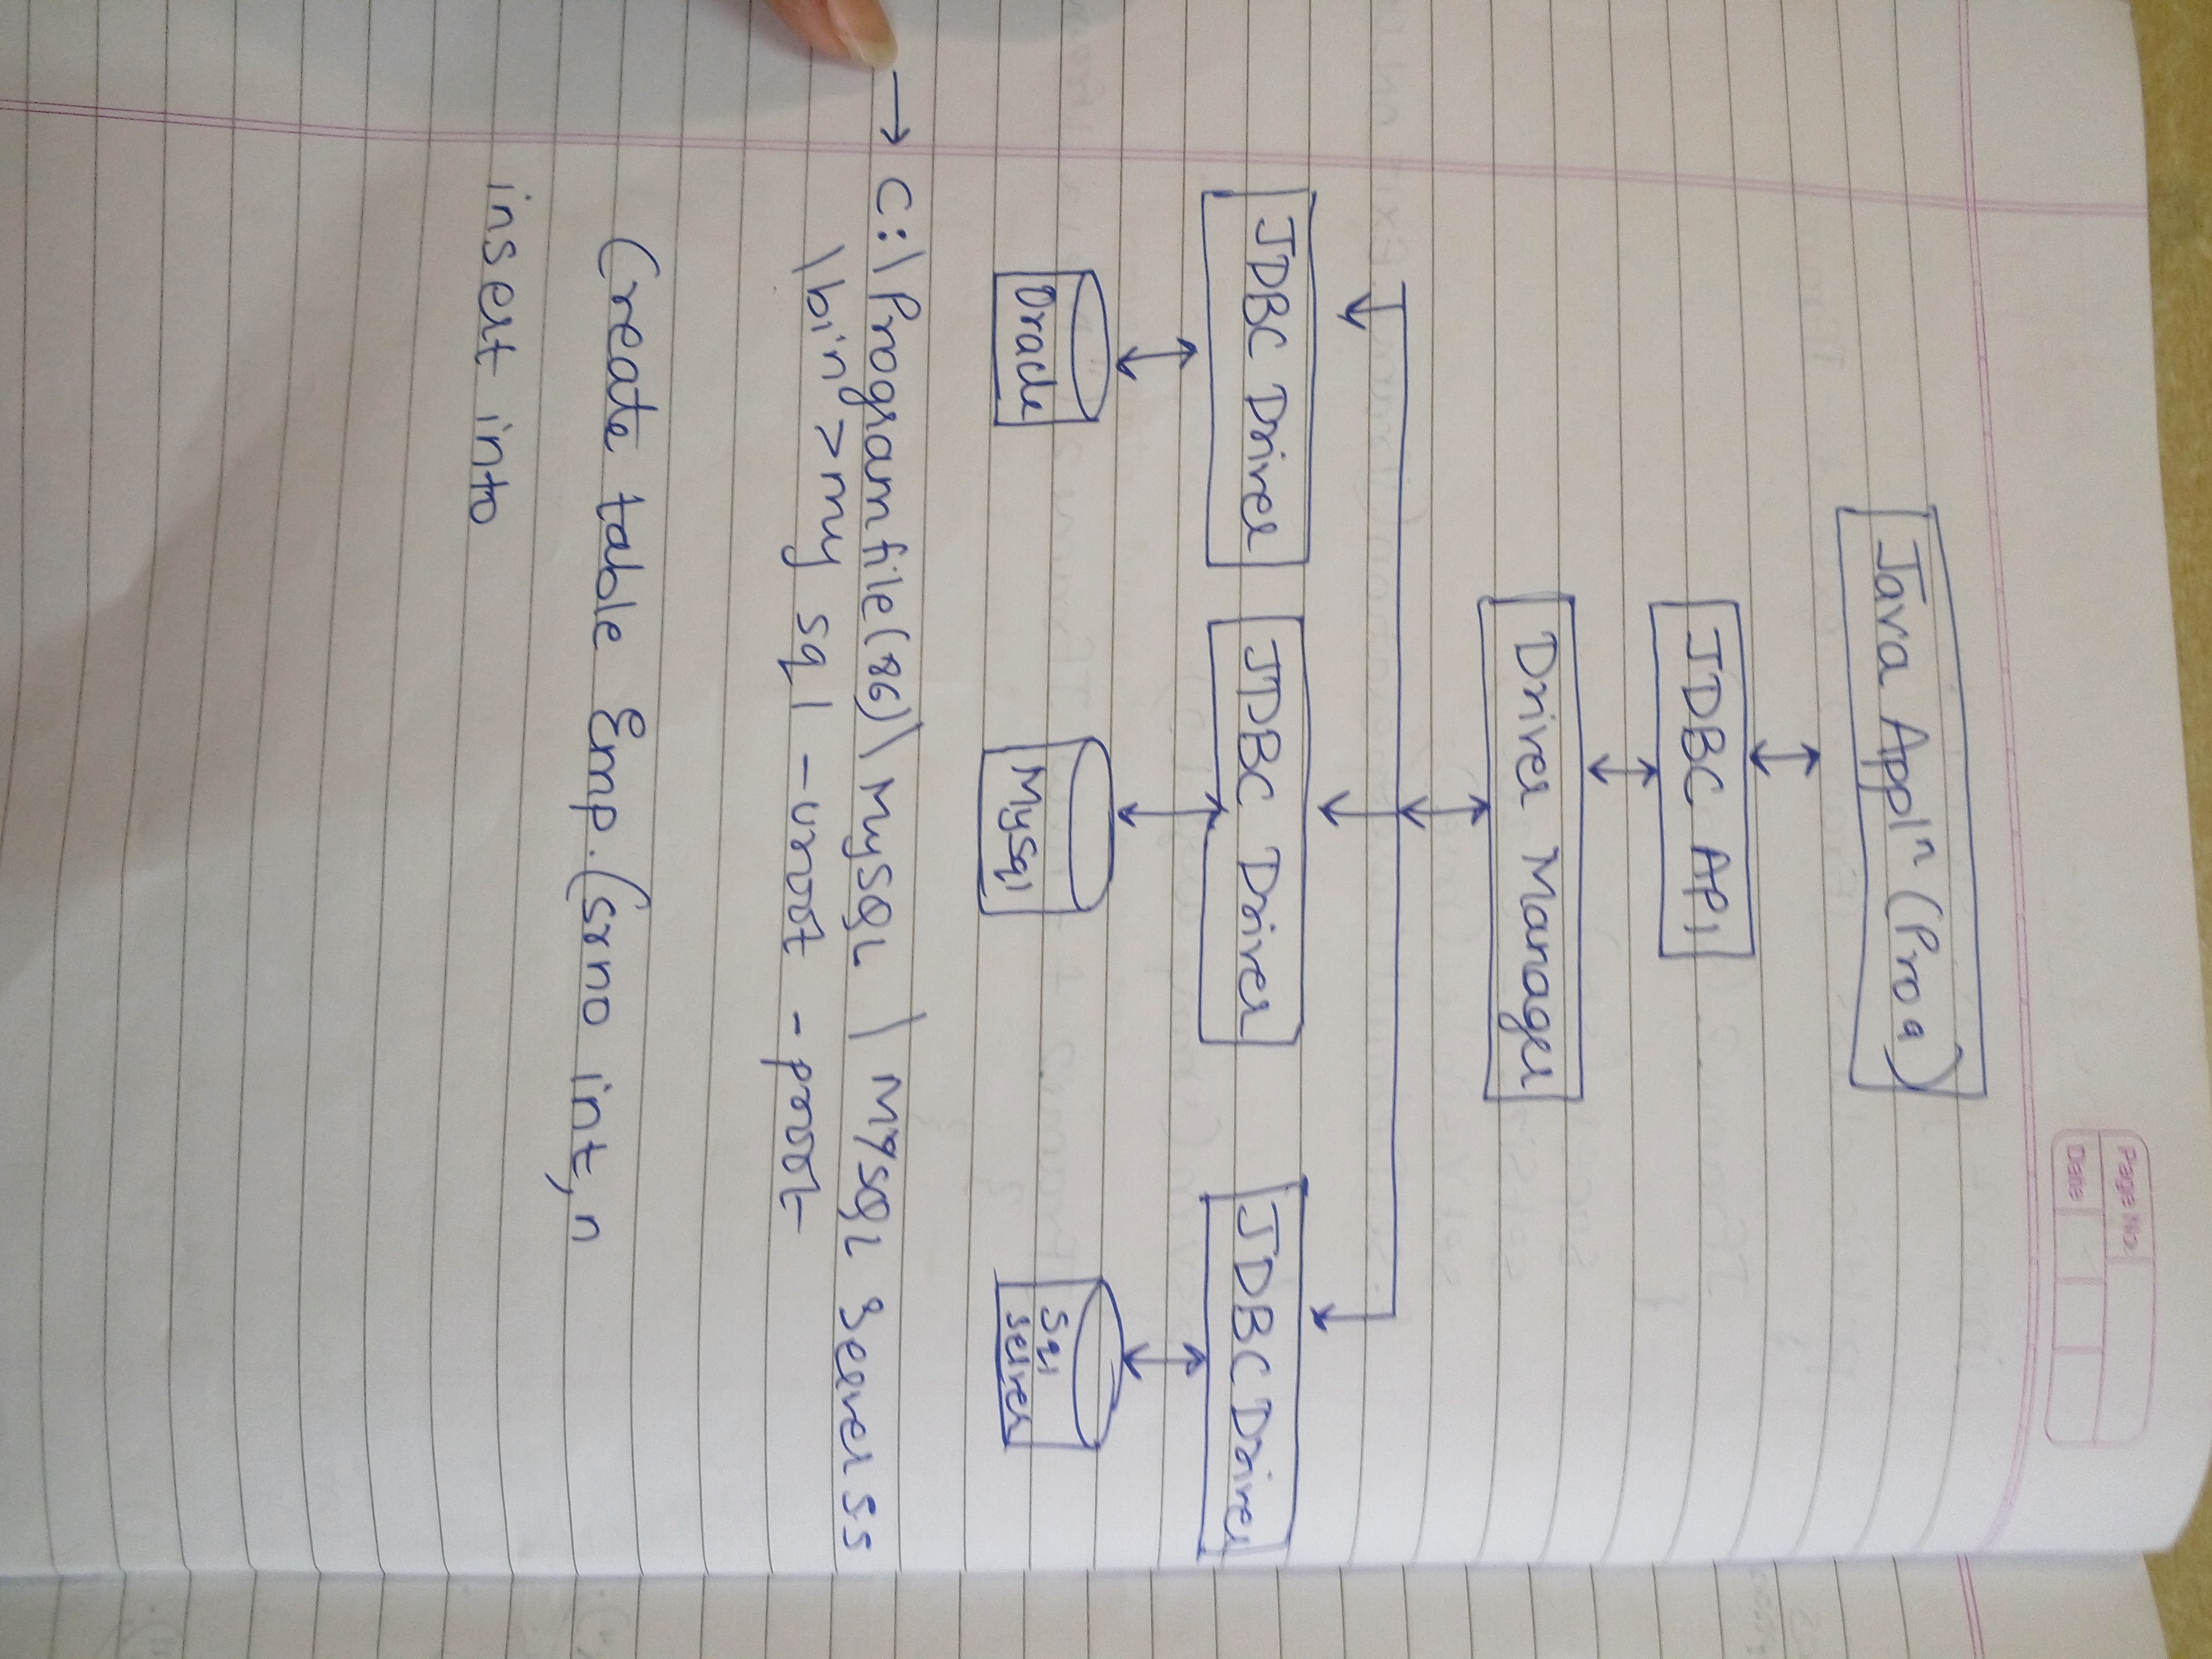 Page No.
Date
Java Appln (Prog)
JDBC API
Driver Manager
JDBC Driver JDBC Driver JDBC Driver
Oracle MySql Sql
server
→ C:\Programfile(x86)\MySQL\MySQL Server 5.5
\bin>my sql -uroot -proot
Create table Emp.(Srno int, n
insert into